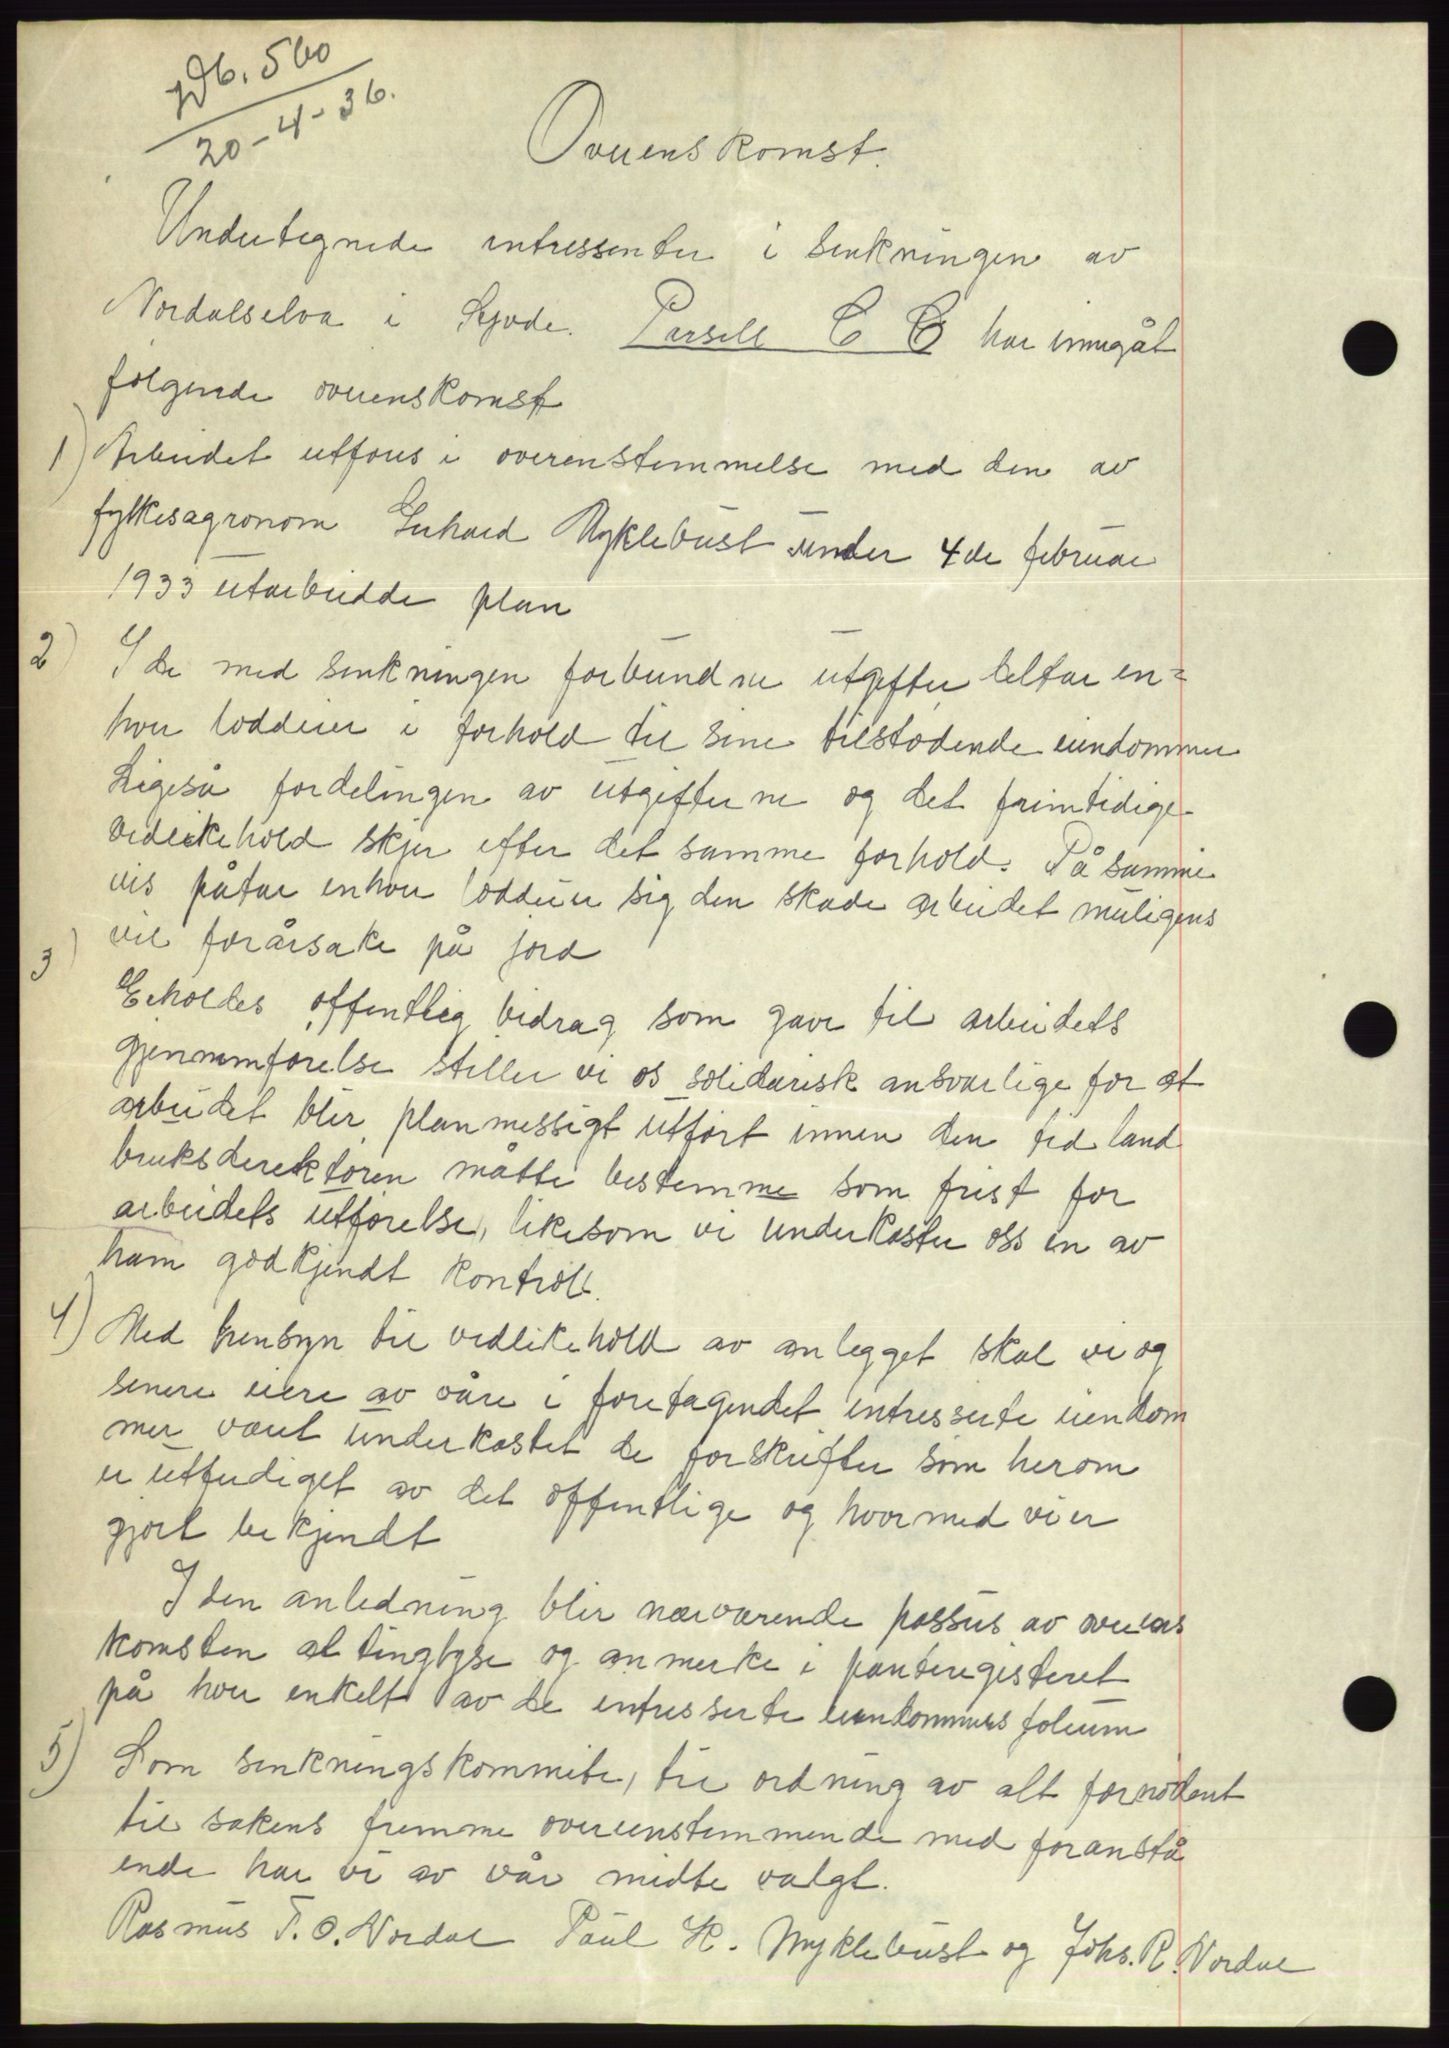 Db. 560
20-4-36.
Overenskomst.
Undertegnede intressenter i senkningen av
Nordalselva i Syvde. Parsell C C har inngåt
følgende overenskomst
1) Arbeidet utføres i overenstemmelse med den av
fylkesagronom Gerhard Myklebust under 4de februar
1933 utarbeidde plan
2) I de med senkningen forbundne utgifter deltar en=
hver loddeier i forhold til sine tilstødende eiendommer
Ligeså fordelingen av utgifterne og det fremtidige
vedlikehold skjer efter det samme forhold. På samme
vis påtar enhver loddeier sig den skade arbeidet muligens
vil forårsake på jord
3) Erholdes offentlig bidrag som gave til arbeidets
gjennemførelse stiller vi os solidarisk ansvarlige for at
arbeidet blir planmessigt utført innen den tid land
bruksderektøren måtte bestemme som frist for
arbeidets utførelse, likesom vi underkaster oss en av
ham godkjendt kontroll.
4) Med hensyn til vedlikehold av anlegget skal vi og
senere eiere av våre i foretagendet intresserte eiendom
mer været underkastet de forskrifter som herom
er utferdiget av det offentlige og hvormed vi er
gjort bekjendt
I den anledning blir nærværende passus av overens
komsten at tinglyse og anmerke i panteregisteret
på hver enkelt av de intresserte eiendommers folium
5) Som senkningskommite, til ordning av alt fornødent
til sakens fremme overeenstemmende med foranstå
ende har vi av vår midte valgt.
Rasmus T. O. Nordal Paul K. Myklebust og Johs. R. Nordal